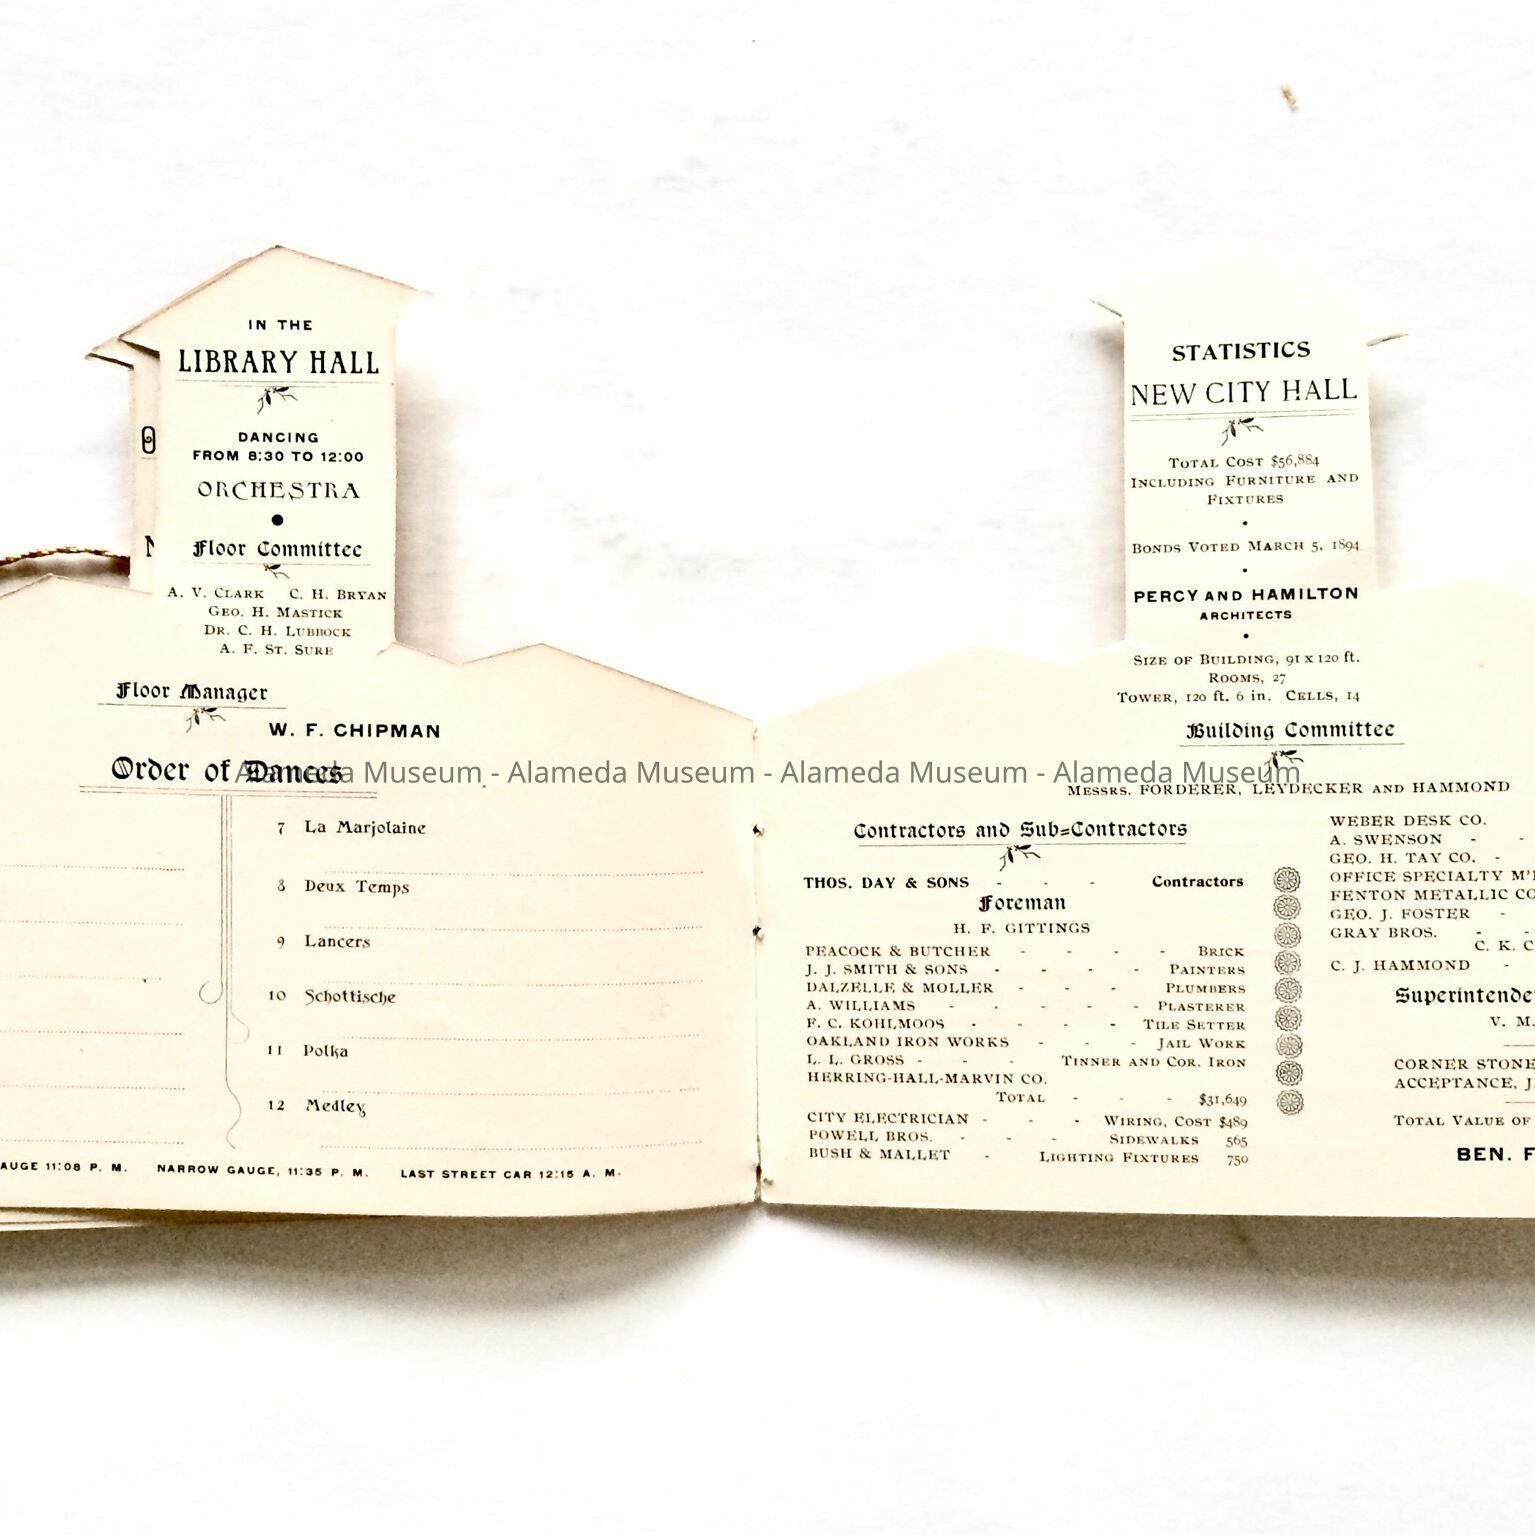 IN THE
LIBRARY HALL
DANCING
FROM 8:30 TO 12:00
ORCHESTRA
Floor Committee
A. V. CLARK C. H. BRYAN
GEO. H. MASTICK
DR. C. H. LUBBOCK
A. F. ST. SURE
Floor Manager
W. F. CHIPMAN
Order of Dances
7 La Marjolaine
8 Deux Temps
9 Lancers
10 Schottische
11 Polka
12 Medley
AUGE 11:08 P. M. NARROW GAUGE, 11:35 P. M. LAST STREET CAR 12:15 A. M.
STATISTICS
NEW CITY HALL
TOTAL COST $56,884
INCLUDING FURNITURE AND
FIXTURES
BONDS VOTED MARCH 5, 1894
PERCY AND HAMILTON
ARCHITECTS
SIZE OF BUILDING, 91 X 120 ft.
ROOMS, 27
TOWER, 120 ft. 6 in. CELLS, 14
Building Committee
MESSRS. FORDERER, LEYDECKER AND HAMMOND
Contractors and Sub=Contractors
THOS. DAY & SONS - - - Contractors
Foreman
H. F. GITTINGS
PEACOCK & BUTCHER - - - - BRICK
J. J. SMITH & SONS - - - - PAINTERS
DALZELLE & MOLLER - - - PLUMBERS
A. WILLIAMS - - - - - PLASTERER
F. C. KOHLMOOS - - - - TILE SETTER
OAKLAND IRON WORKS - - - JAIL WORK
L. L. GROSS - - - TINNER AND COR. IRON
HERRING-HALL-MARVIN CO.
TOTAL - - - $31,649
CITY ELECTRICIAN - - - WIRING, COST $489
POWELL BROS. - - - SIDEWALKS 565
BUSH & MALLET - LIGHTING FIXTURES 750
WEBER DESK CO.
A. SWENSON - -
GEO. H. TAY CO. -
OFFICE SPECIALTY M'
FENTON METALLIC CO
GEO. J. FOSTER -
GRAY BROS. - -
C. K. C
C. J. HAMMOND -
Superintende
V. M.
CORNER STONE
ACCEPTANCE, J
TOTAL VALUE OF
BEN. F
Alameda Museum - Alameda Museum - Alameda Museum - Alameda Museum